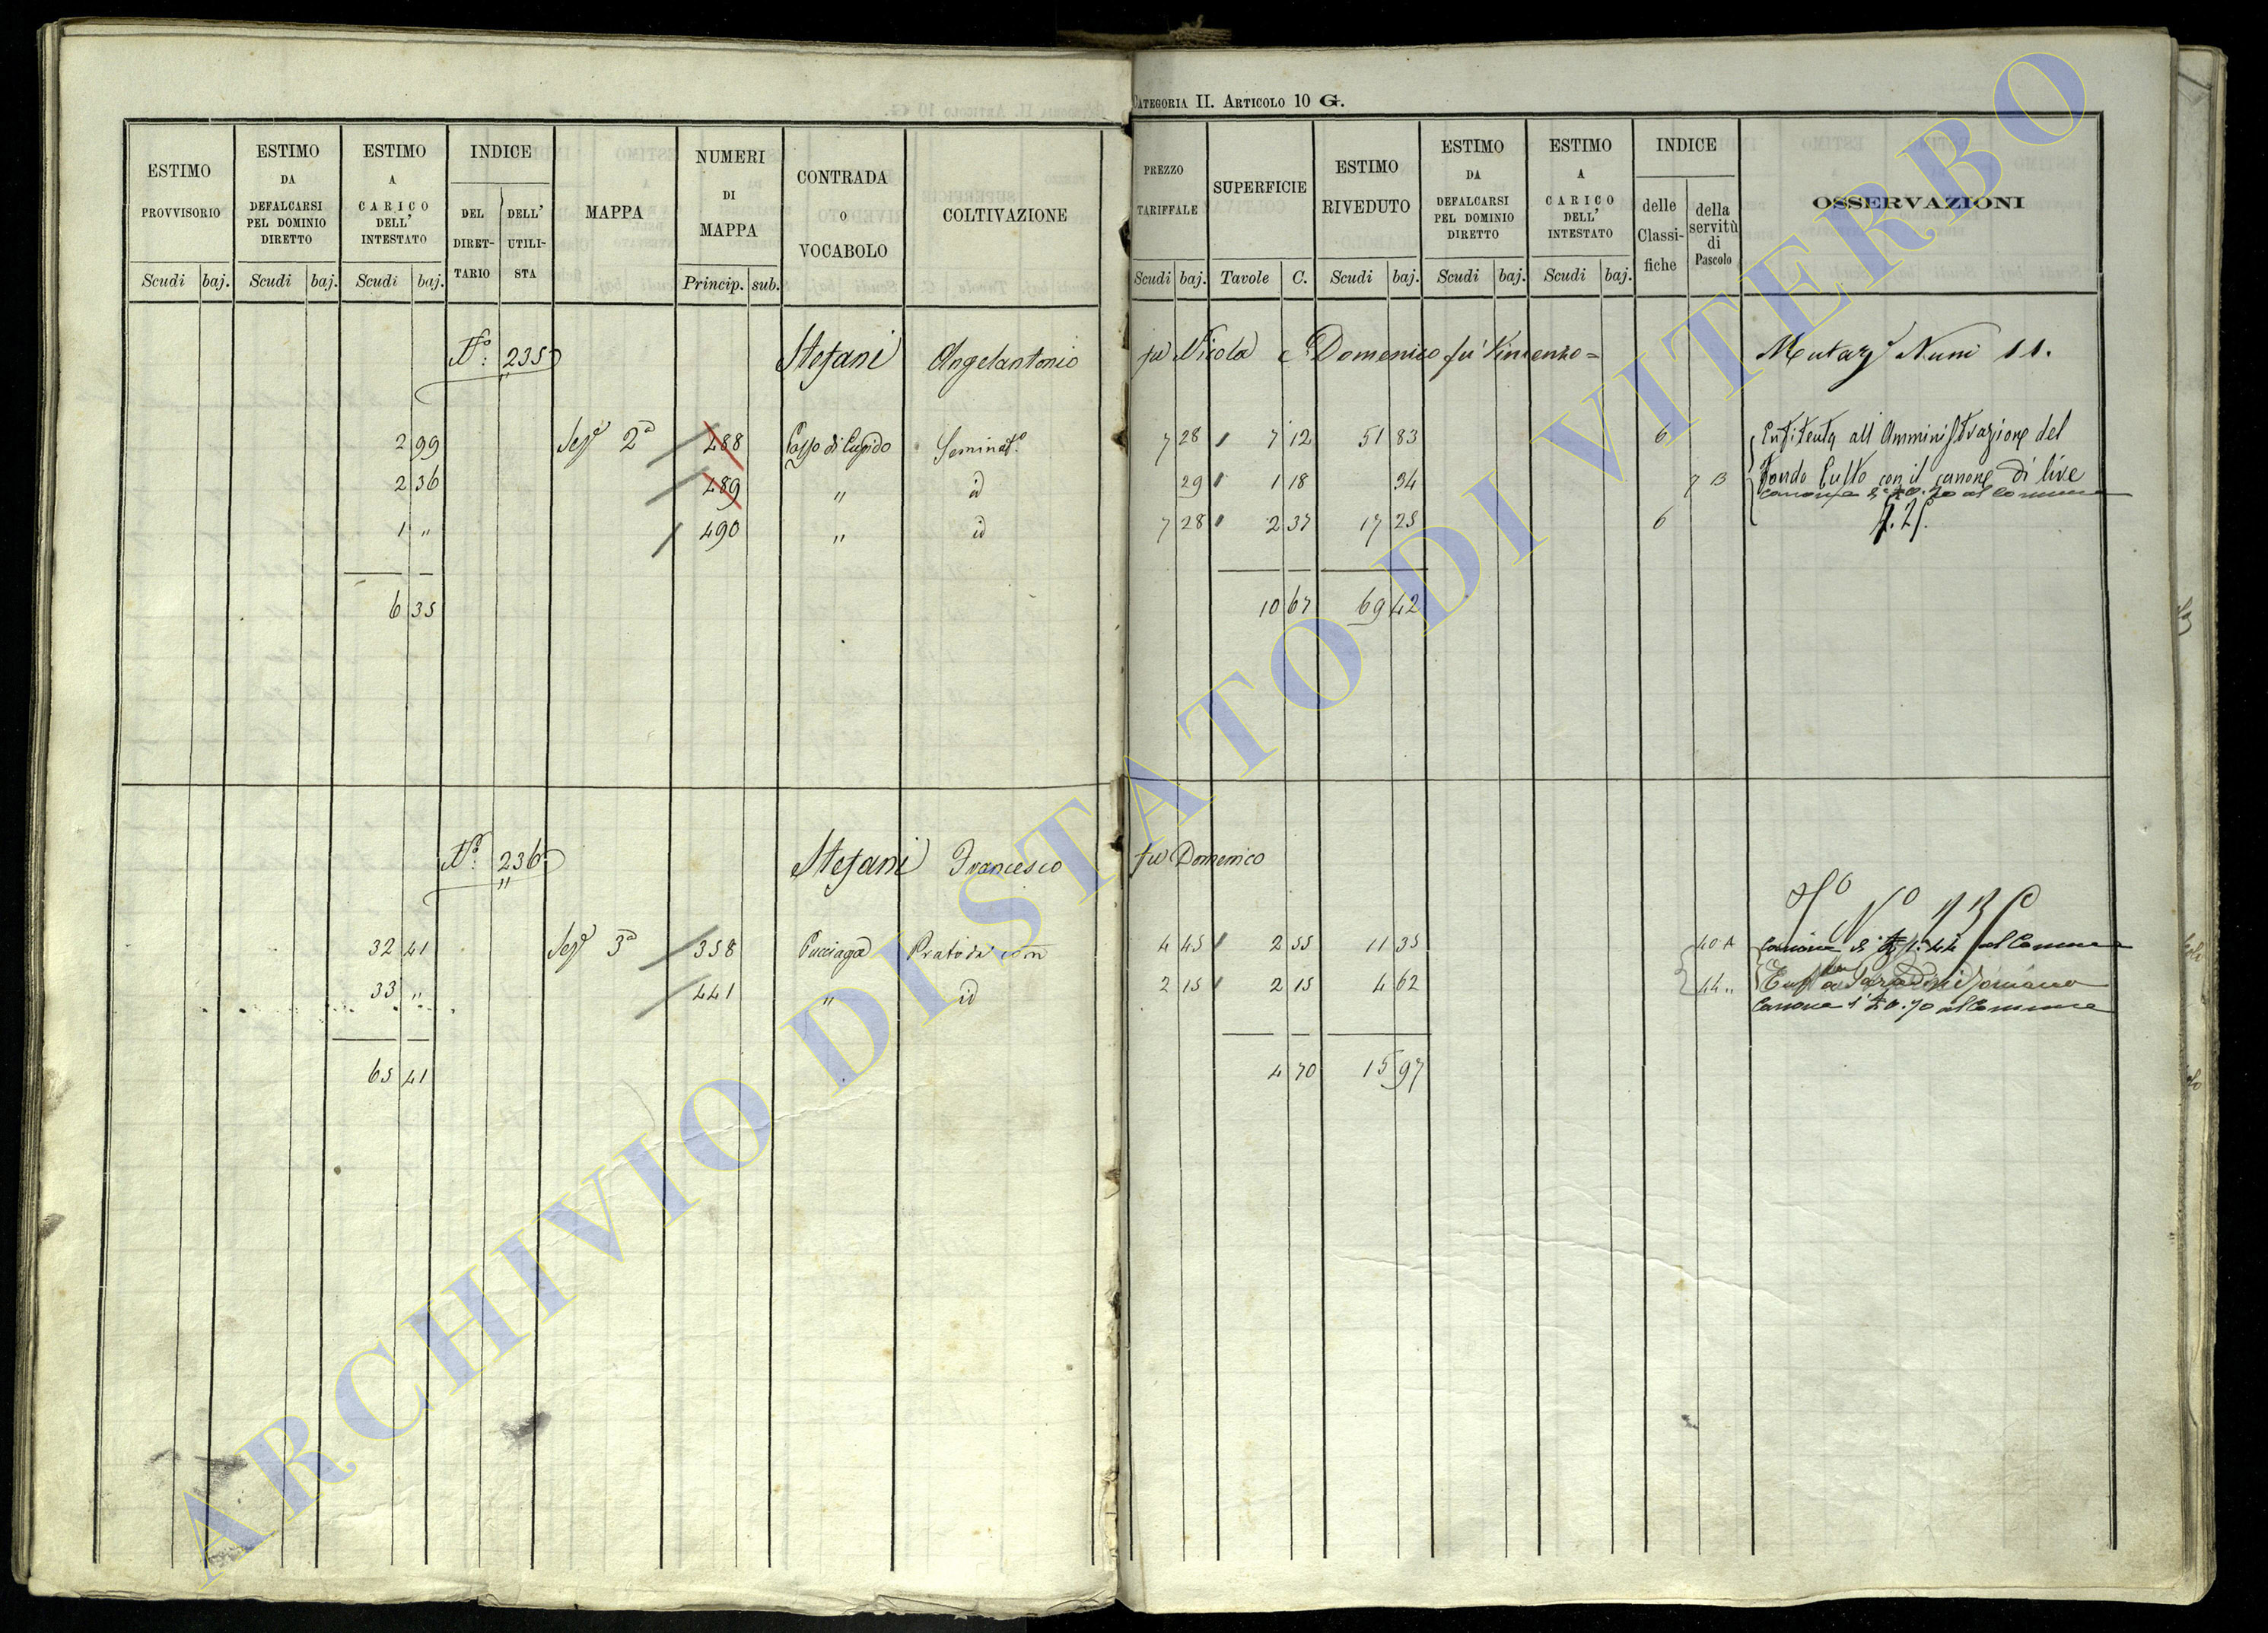 CATEGORIA II. ARTICOLO 10 G.
ESTIMO PROVVISORIO
ESTIMO DA DEFALCARSI PEL DOMINIO DIRETTO
ESTIMO A CARICO DELL' INTESTATO
INDICE
DEL DIRETTARIO
DELL' UTILISTA
MAPPA
NUMERI DI MAPPA
CONTRADA O VOCABOLO
COLTIVAZIONE
PREZZO TARIFFALE
SUPERFICIE
ESTIMO RIVEDUTO
ESTIMO DA DEFALCARSI PEL DOMINIO DIRETTO
ESTIMO A CARICO DELL' INTESTATO
INDICE
delle Classifiche
della servitù di Pascolo
OSSERVAZIONI
Scudi baj. Scudi baj. Scudi baj. Princip. sub. Scudi baj. Tavole C. Scudi baj. Scudi baj. Scudi baj.
N.° 235 Stefani Angelantonio fu Nicola e Domenico fu Vincenzo = Nuni 11.
2 99 2a 488 Seminat.o 7 28 7 12 51 83 6 all Amministrazione del
2 36 489 " id 29 1 18 34 7 B Fondo Culto con il canone di live
canone al Comune
1 " 490 " id 7 28 2 37 17 25 6
6 35 10 67 69 42
N.° 236 Stefani Francesco fu Domenico
32 41 3a 358 Pucciaga Prato 4 45 2 55 11 35 40 A Canone al Comune
33 " 441 " id 2 15 2 15 4 62 44 "
Canone 0.70 al Comune
65 41 4 70 15 97
ARCHIVIO DI STATO DI VITERBO